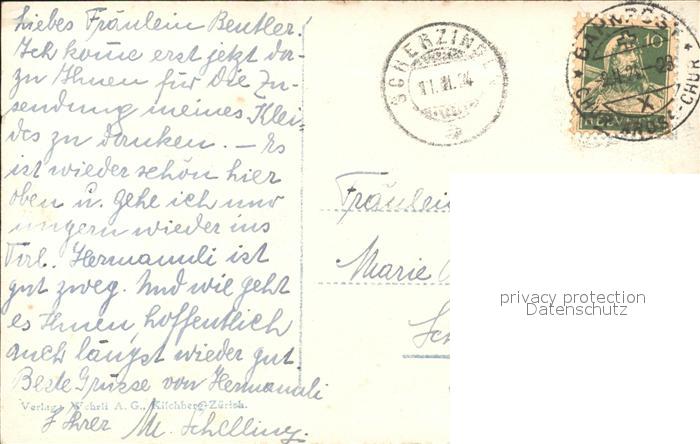 Liebes Fräulein Beutler!
Ich kome erst jetzt da-
zu Ihnen für die Zu-
sendung meines Klei-
des zu danken. — Es
ist wieder schön hier
oben u. gehe ich nur
ungern wieder ins
Hermannli ist
gut zweg. Und wie geht
es Ihnen, hoffentlich
auch längst wieder gut.
Beste Grüsse von Hermannli
Ihrer M. Schelling.
Verlag: Wehrli A. G., Kilchberg-Zürich.
SCHERZINGEN
BAHNPOST
X
CHUR
AROSA-CHUR
10
HELVETIA
Fräulein
Marie
privacy protection
Datenschutz